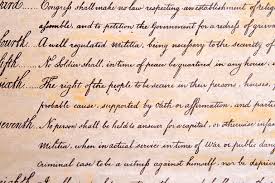 Congress shall make no law respecting an establishment of relig
aſsemble, and to petition the Government for a redreſs of grieva
ourth.. A well regulated Militia, being neceſsary to the security of
ifth.. No Soldier shall, in time of peace be quartered in any house,
ixth.. The right of the people to be secure in their persons, houses,
probable cause, supported by Oath or affirmation, and partic
eventh. No person shall be held to answer for a capital, or otherwise infam
Militia, when in actual service in time of War or public dange
Criminal case to be a witneſs against himself, nor be depri